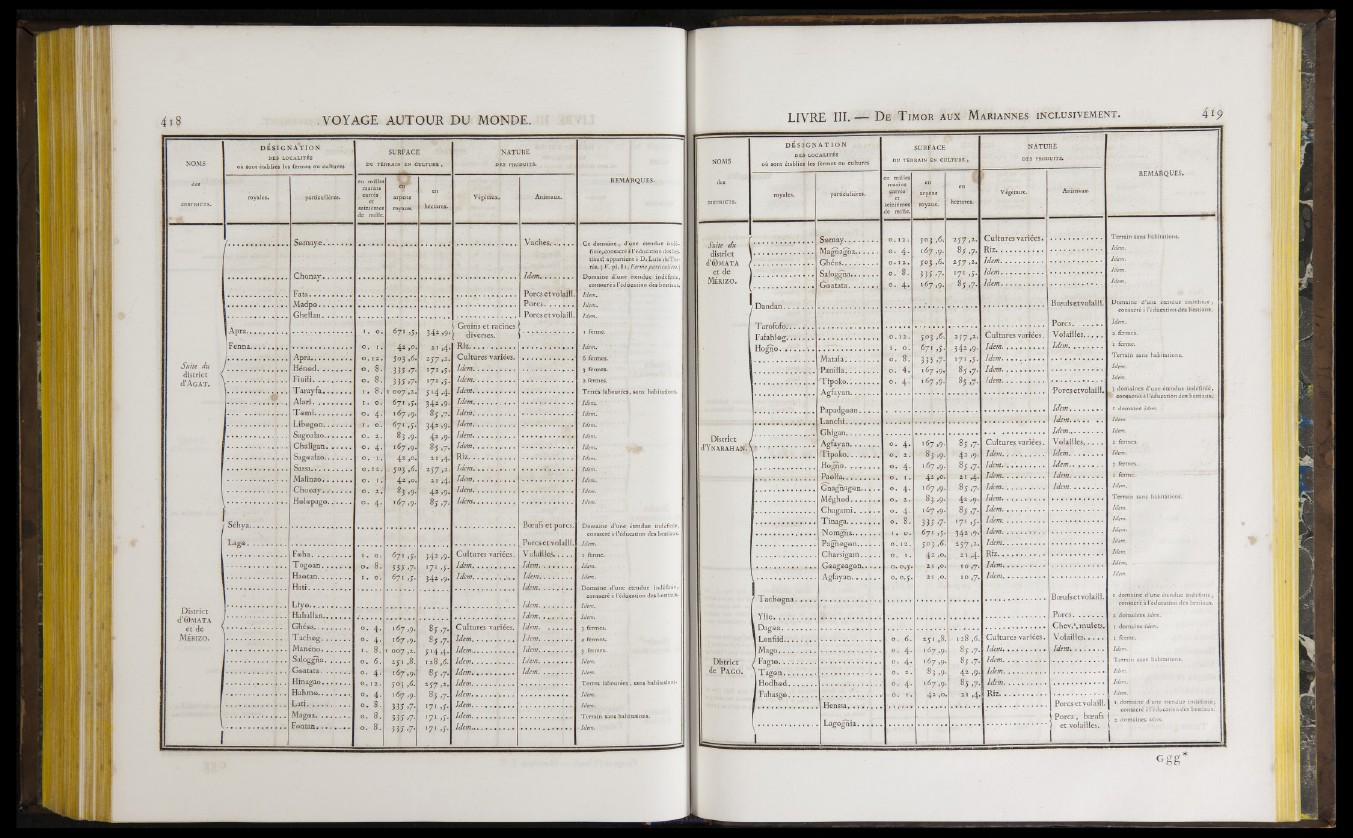 418 VOYAGE AUTOUR DU MONDE.
NOMS des DISTRICTS.
DÉSIGNATION DES LOCALITÉS où sont établies les fermes ou cultures
royales. particulières.
SURFACE DU TERRAIN EN CULTURE,
en milles marins carrés et seizièmes de mille. en arpens royaux. en hectares.
NATURE DES PRODUITS.
Végétaux. Animaux.
REMARQUES.
Suite du district d'AGAT.
Sumaye. Vaches. Ce domaine, d'une étendue
Chonay. Idem. Domaine d'une étendue indéfinie, consacré à l'éducation des bestiaux.
Fata. Porcs et volaill. Idem.
Madpo. Porcs. Idem.
Ghellan. Porcs et volaill. Idem.
Apra. 1. 0. 671,5. 342,9. Grains et racines diverses. 1 ferme.
Fenna. 0. 1. 42,0. 21,4. Riz. Idem.
Apra. 0.12. 503,6. 257,2. Cultures variées. 6 fermes.
Hénod. 0. 8. 335,7. 171,5. Idem. 3 fermes.
Finili. 0. 8. 335,7. 171,5. Idem. 2 fermes.
Tanayfa. 1. 8. 1 007,2. 514,4. Idem. Terres labourées, sans habitations.
Alari. 1. 0. 671,5. 342,9. Idem. Idem.
Tomi. 0. 4. 167,9. 85,7. Idem. Idem.
Libogon. 1. 0. 671,5. 342,9. Idem. Idem.
Sagoalao. 0. 2. 83,9. 42,9. Idem. Idem.
Chaligan. 0. 4. 167,9. 85,7. Idem. Idem.
Sagoalao. 0. 1. 42,0. 21,4. Riz. Idem.
Sassa. 0.12. 503,6. 257,2. Idem. Idem.
Malinao. 0. 1. 42,0. 21,4. Idem. Idem.
Chonay. 0. 2. 83,9. 42,9. Idem. Idem.
Holopago. 0. 4. 167,9. 85,7. Idem. Idem.
District d'UMATA et de MÉRIZO.
Séhya. Bœufs et porcs. Domaine d'une étendue indéfinie, consacré à l'éducation des bestiaux.
Lago. Porcs et volaill. Idem.
Foha. 1. 0. 671,5. 342,9. Cultures variées. Volailles. 1 ferme.
Togoan. 0. 8. 335,7. 171,5. Idem. Idem. Idem.
Haotan. 1. 0. 671,5. 342,9. Idem. Idem. Idem.
Hati. Idem. Domaine d'une étendue indéfinie, consacré à l'éducation des bestiaux.
Liyo. Idem. Idem.
Haballan. Idem. Idem.
Ghéus. 0. 4. 167,9. 85,7. Cultures variées. Idem. 3 fermes.
Tachog. 0. 4. 167,9. 85,7. Idem. Idem. 2 fermes.
Maneno. 1. 8. 1 007,2. 514,4. Idem. Idem. 3 fermes.
Saloggna. 0. 6. 251,8. 128,6. Idem. Idem. Idem.
Goatata. 0. 4. 167,9. 85,7. Idem. Idem. Idem.
Hinagao. 0.12. 503,6. 257,2. Idem. Terres labourées, sans habitations.
Hahmo. 0. 4. 167,9. 85,7. Idem. Idem.
Lati. 0. 8. 335,7. 171,5. Idem. Idem.
Magoa. 0. 8. 335,7. 171,5. Idem. Terrain sans habitations.
Fontan. 0. 8. 335,7. 171,5. Idem. Idem.
LIVRE III. — DE TIMOR AUX MARIANNES INCLUSIVEMENT. 419
NOMS des DISTRICTS.
DÉSIGNATION DES LOCALITÉS où sont établies les fermes ou cultures
royales. particulières.
SURFACE DU TERRAIN EN CULTURE,
en milles marins carrés et seizièmes de mille. en arpens royaux. en hectares.
NATURE DES PRODUITS.
Végétaux. Animaux.
REMARQUES.
Suite du district d'UMATA et de MÉRIZO.
Sumay. 0.12. 503,6. 257,2. Cultures variées. Terrain sans habitations.
0. 4. 167,9. 85,7. Riz. Idem.
Ghéus. 0.12. 503,6. 257,2. Idem. Idem.
Saloggna. 0. 8. 335,7. 171,5. Idem. Idem.
Goatata. 0. 4. 167,9. 85,7. Idem. Idem.
District d'YNARAHAN.
Dandan. Bœufs et volaill. Domaine d'une étendue indéfinie, consacré à l'éducation des bestiaux.
Tarofofo. Porcs. Idem.
Fafahlog. 0.12. 503,6. 257,2. Cultures variées. Volailles. 2 fermes.
Hogño. 1. 0. 671,5. 342,9. Idem. Idem. 1 ferme.
Matala. 0. 8. 335,7. 171,5. Idem. Terrain sans habitations.
Panilla. 0. 4. 167,9. 85,7. Idem. Idem.
Tipoko. 0. 4. 167,9. 85,7. Idem. Idem.
Agfayan. Porcs et volaill. 3 domaines d'une étendue indéfinie, consacrés à l'éducation des bestiaux.
Papadgoan. Idem. 1 domaine idem.
Lanchi. Idem. Idem.
Ghigan. Idem. Idem.
Agfayan. 0. 4. 167,9. 85,7. Cultures variées. Volailles. 2 fermes.
Tipoko. 0. 2. 83,9. 42,9. Idem. Idem. Idem.
Hogño. 0. 4. 167,9. 85,7. Idem. Idem. 3 fermes.
Paolla. 0. 1. 42,0. 21,4. Idem. Idem. 1 ferme.
0. 4. 167,9. 85,7. Idem. Idem. Idem.
Méghod. 0. 2. 83,9. 42,9. Idem. Terrain sans habitations.
Chagami. 0. 4. 167,9. 85,7. Idem. Idem.
Tinaga. 0. 8. 335,7. 171,5. Idem. Idem.
Nomgña. 1. 0. 671,5. 342,9. Idem. Idem.
Pagñogon. 0.12. 503,6. 257,2. Idem. Idem.
Charsigam. 0. 1. 42,0. 21,4. Riz. Idem.
Gaogaogon. 0.0,5. 21,0. 10,7. Idem. Idem.
Agfayan. 0.0,5. 21,0. 10,7. Idem. Idem.
District de PAGO.
Tachogna. Bœufs et volaill. 1 domaine d'une étendue indéfinie, consacré à l'éducation des bestiaux.
Ylic. Porcs. 2 domaines idem.
Dogoa. Chev.x, mulets. 1 domaine idem.
Lonfiid. 0. 6. 251,8. 128,6. Cultures variées. Volailles. 1 ferme.
Mago. 0. 4. 167,9. 85,7. Idem. Idem. Idem.
Fagno. 0. 4. 167,9. 85,7. Idem. Terrain sans habitations.
Tagon. 0. 2. 83,9. 42,9. Idem. Idem.
Hodhod. 0. 4. 167,9. 85,7. Idem. Idem.
Fahasgo. 0. 1. 42,0. 21,4. Riz. Idem.
Henssa. Porcs et volaill. 1 domaine d'une étendue indéfinie, consacré à l'éducation des bestiaux.
Lagogñia. Porcs, bœufs et volailles. 2 domaines idem.
Ggg*